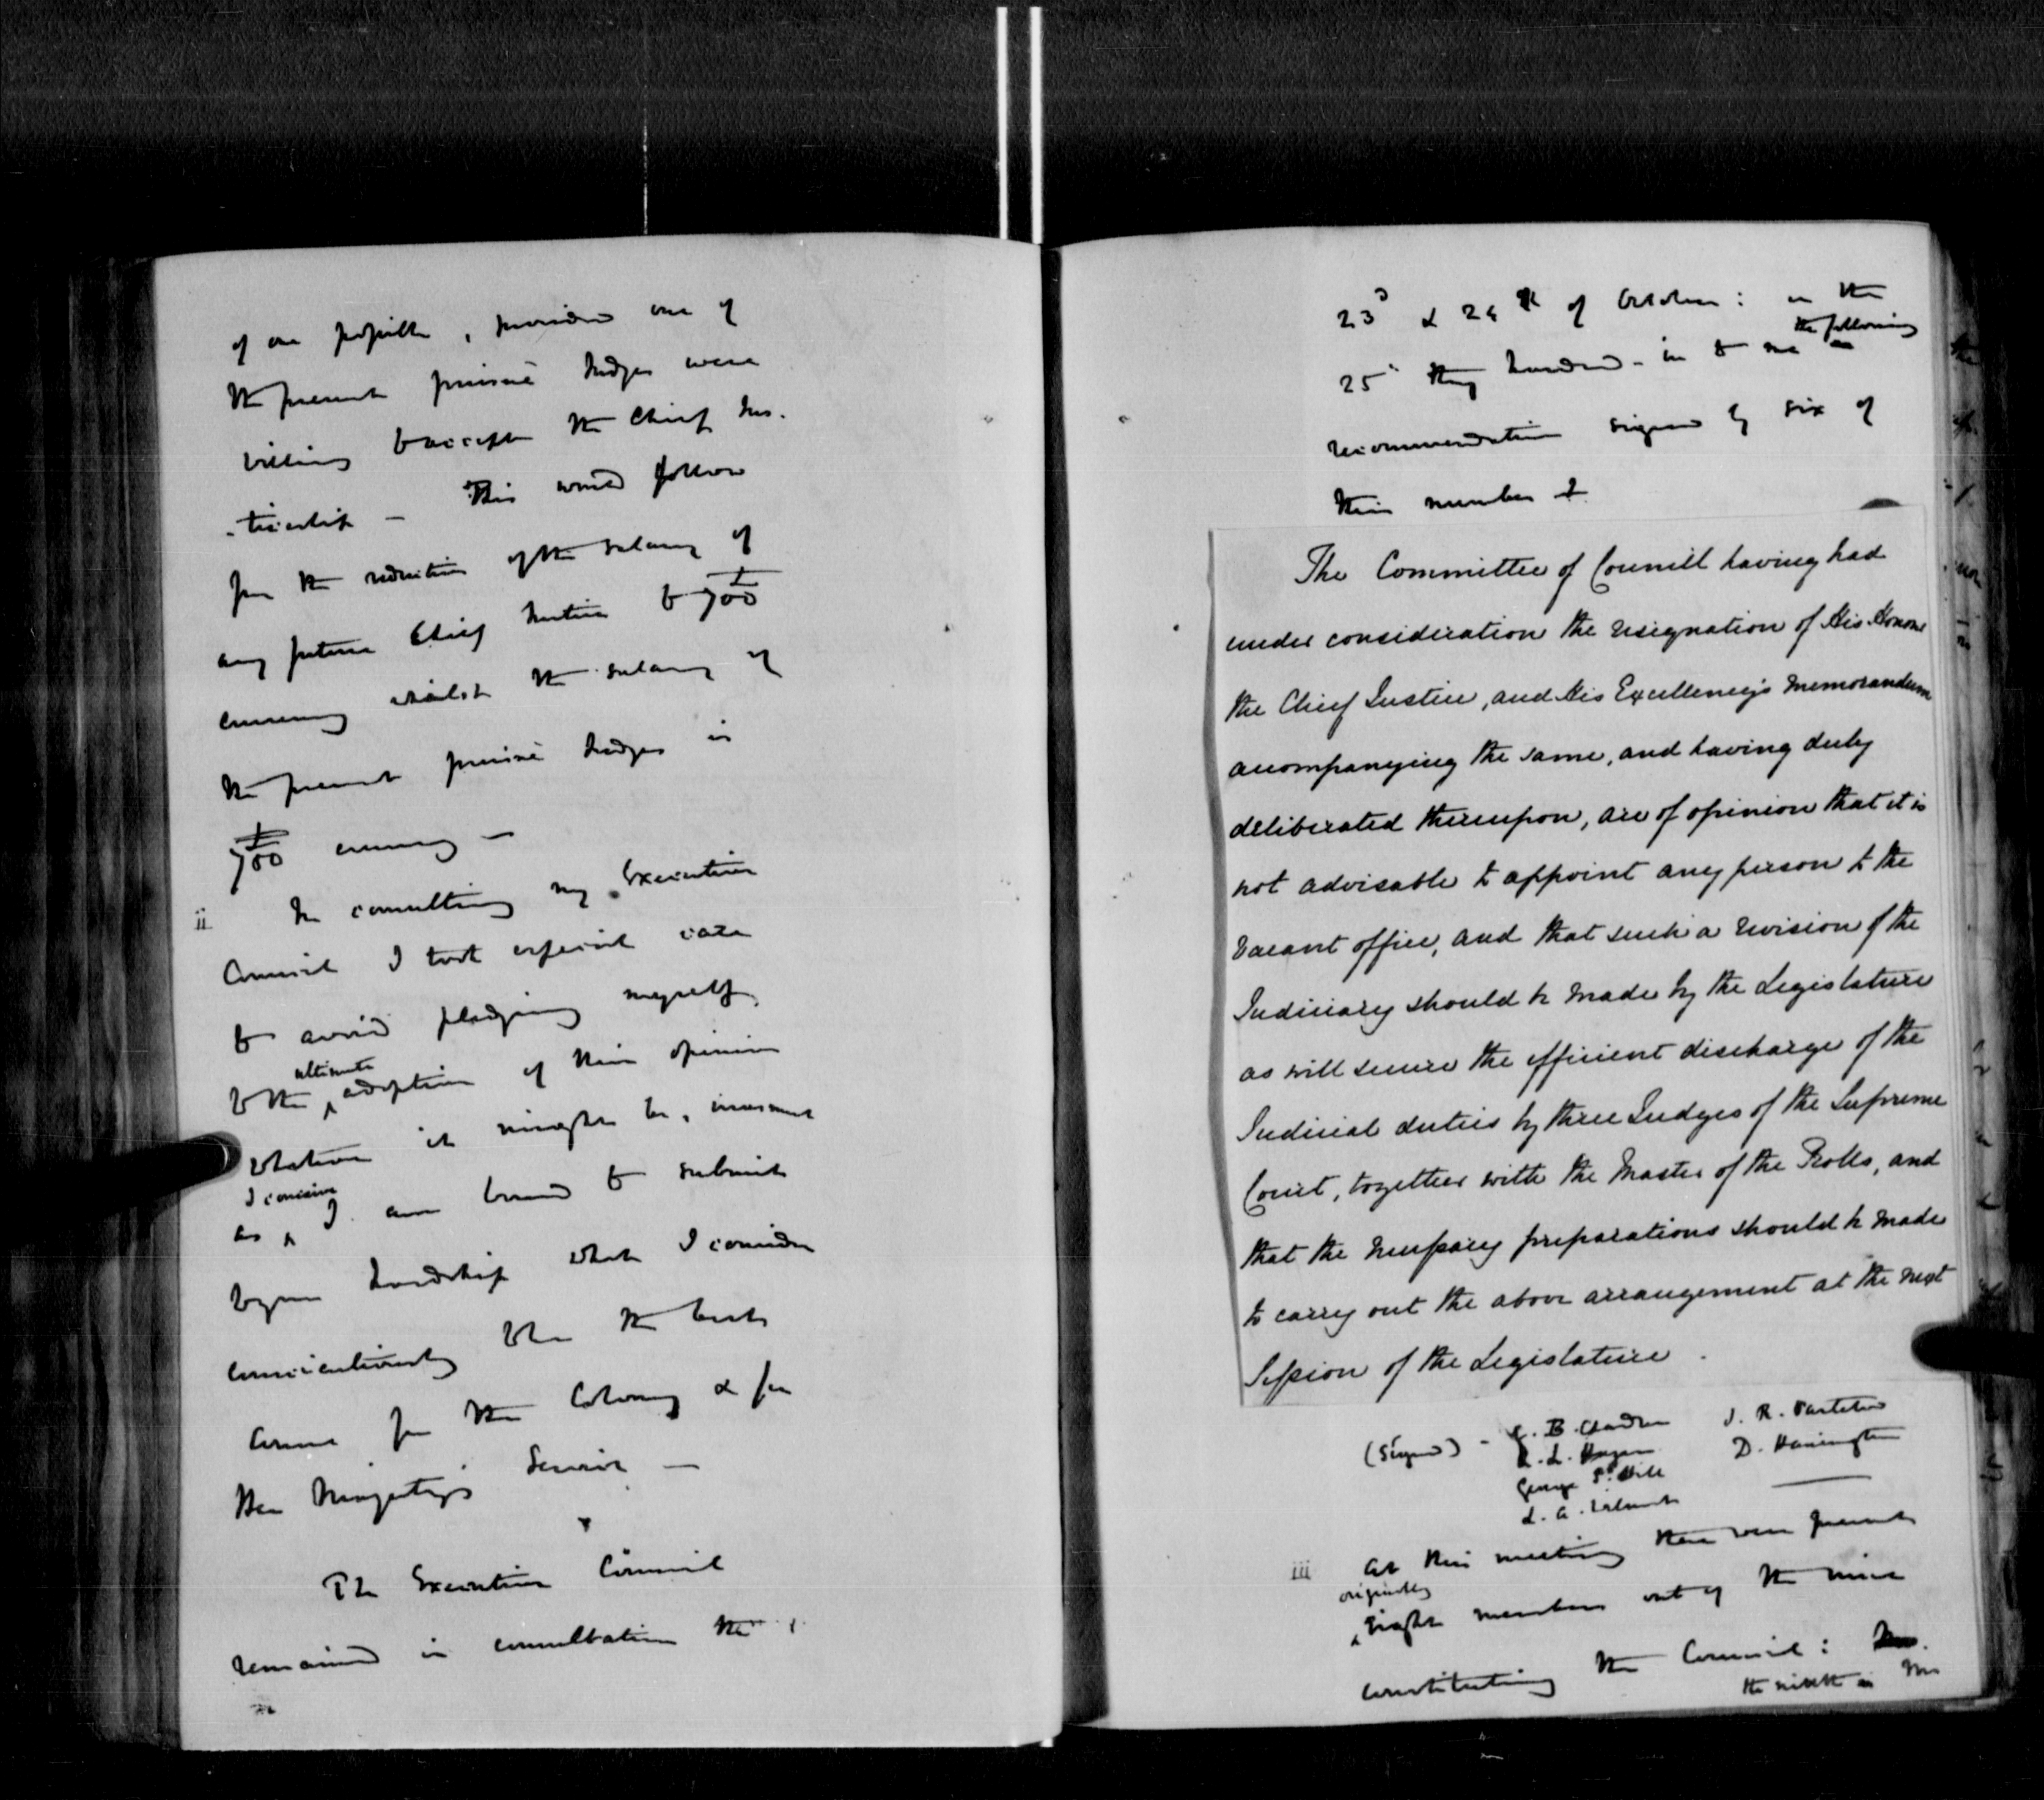 of one possible, provided one of
the present puisné Judges were
willing to accept the Chief Jus-
-ticeship – This would follow
from the reduction of the salary of
any future Chief Justice to £700
currency whilst the salary of
the present puisné Judges is
£700 currency –
ii In consulting my Executive
Council I took especial care
to avoid pledging myself
to the ultimate adoption of their opinion
whatever it might be, inasmuch
as I conceive I am bound to submit
to your Lordship what I consider
conscientiously to be the best
course for the Colony & for
Her Majesty's Service –
The Executive Council
remained in consultation the
23d & 24th of October: on the
25th they handed in to me the following
recommendation signed by six of
their number
The Committee of Council having had
under consideration the resignation of His Honor
the Chief Justice, and His Excellency's Memorandum
accompanying the same, and having duly
deliberated thereupon, are of opinion that it is
not advisable to appoint any person to the
vacant office, and that such a revision of the
Judiciary should be made by the Legislature
as will secure the efficient discharge of the
Judicial duties by three Judges of the Supreme
Court, together with the Master of the Rolls, and
that the necessary preparations should be made
to carry out the above arrangement at the next
Session of the Legislature.
(Signed) – E. B. Chandler J. R. Partelow
R. L. Hazen D. Hanington
George S. Hill
L. A. Wilmot
iii At this meeting there were present
originally eight members out of the nine
constituting the Council:
the ninth